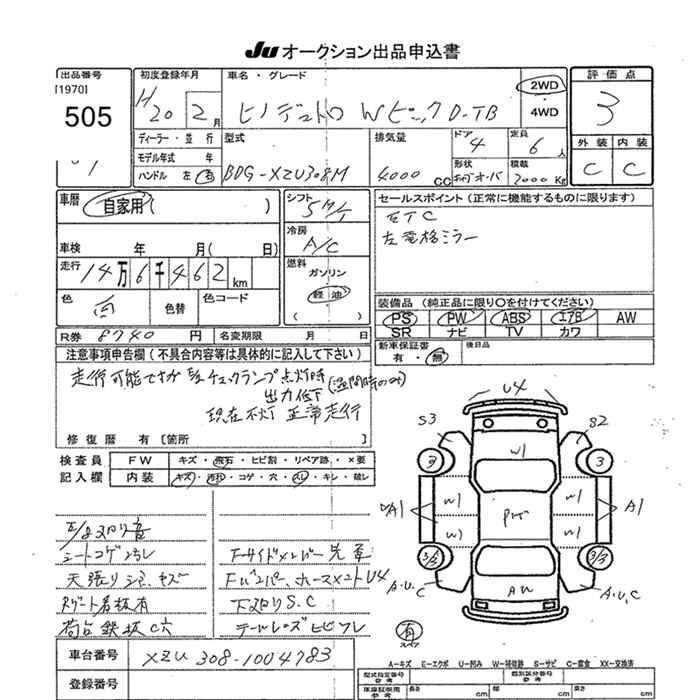 Ju オークション出品申込書
出品番号
[1970]
505
初度登録年月
H20 2月
車名・グレード
ヒノデュトロ Wピック D-TB
2WD
4WD
評価点
3
外装 内装
C C
ディーラー・並行
モデル年式 年
ハンドル 左 右
型式
BDG-XZU308M
排気量
4000 CC
ドア
4
定員
6人
形状
積載
2000 Kg
車歴
自家用( )
車検 年 月( 日)
走行
14万6千462km
色 白 色替 色コード
シフト
5 M/T
冷房
A/C
燃料
ガソリン
軽油
( )
セールスポイント(正常に機能するものに限ります)
ETC
左電格ミラー
装備品(純正品に限り○を付けてください)
PS PW ABS エアB AW
SR ナビ TV カワ
新車保証書
有・無
後日品
R券 8740 円 名変期限 月 日
注意事項申告欄(不具合内容等は具体的に記入して下さい)
走行可能ですが チェックランプ点灯時
出力低下
現在不灯 正常走行
修復歴 有[箇所 ]
検査員 FW キズ・飛石・ヒビ割・リペア跡・×要
記入欄 内装 キズ・汚れ・コゲ・穴・スレ・キレ・破レ
シートコゲ
天張り キズ
荷台鉄板 穴
Fサイドメンバー先
Fバンパー、ホースメントU4
下廻りS.C
テールレンズヒビワレ
U4
S3 S2
W1
3 3
A1 W1 W1 A1
W1 W1
A.U.C A.U.C
有
スペア
車台番号 XZU 308-1004783
登録番号
A-キズ E-エクボ U-凹み W-補修跡 S-サビ C-腐食 XX-交換済
型式指定番号
参考
類別区分番号
参考
車庫証明用
参考
長さ cm 幅 cm 高さ cm